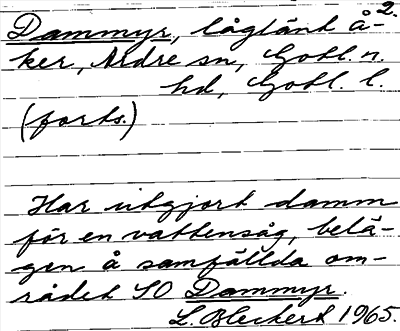 2.
Dammyr, låglänt å-
ker, Ardre sn, Gotl. n.
hd, Gotl. l.
(forts.)
Har utgjort damm
för en vattensåg, belä-
gen å samfällda om-
rådet SO Dammyr.
L. Bleckert 1965.